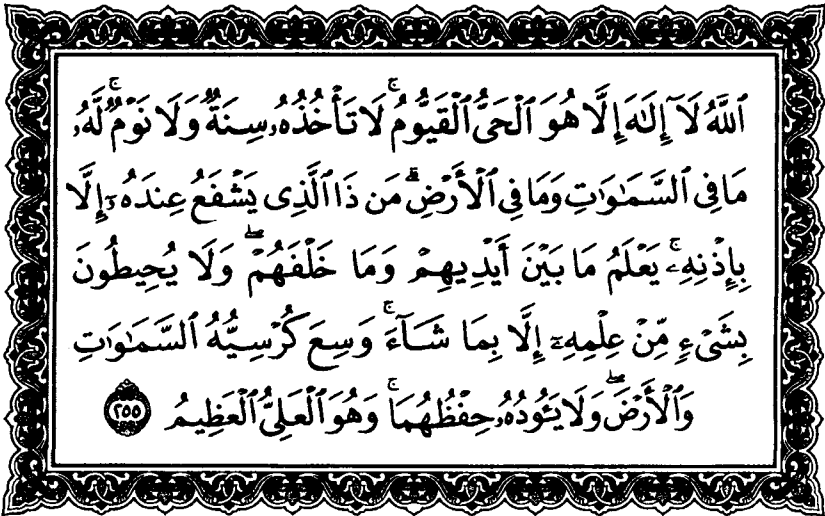 ٱللَّهُ لَآ إِلَٰهَ إِلَّا هُوَ ٱلْحَىُّ ٱلْقَيُّومُ ۚ لَا تَأْخُذُهُۥ سِنَةٌ وَلَا نَوْمٌ ۚ لَّهُۥ
مَا فِى ٱلسَّمَٰوَٰتِ وَمَا فِى ٱلْأَرْضِ ۗ مَن ذَا ٱلَّذِى يَشْفَعُ عِندَهُۥٓ إِلَّا
بِإِذْنِهِۦ ۚ يَعْلَمُ مَا بَيْنَ أَيْدِيهِمْ وَمَا خَلْفَهُمْ ۖ وَلَا يُحِيطُونَ
بِشَىْءٍ مِّنْ عِلْمِهِۦٓ إِلَّا بِمَا شَآءَ ۚ وَسِعَ كُرْسِيُّهُ ٱلسَّمَٰوَٰتِ
وَٱلْأَرْضَ ۖ وَلَا يَـُٔودُهُۥ حِفْظُهُمَا ۚ وَهُوَ ٱلْعَلِىُّ ٱلْعَظِيمُ ٢٥٥